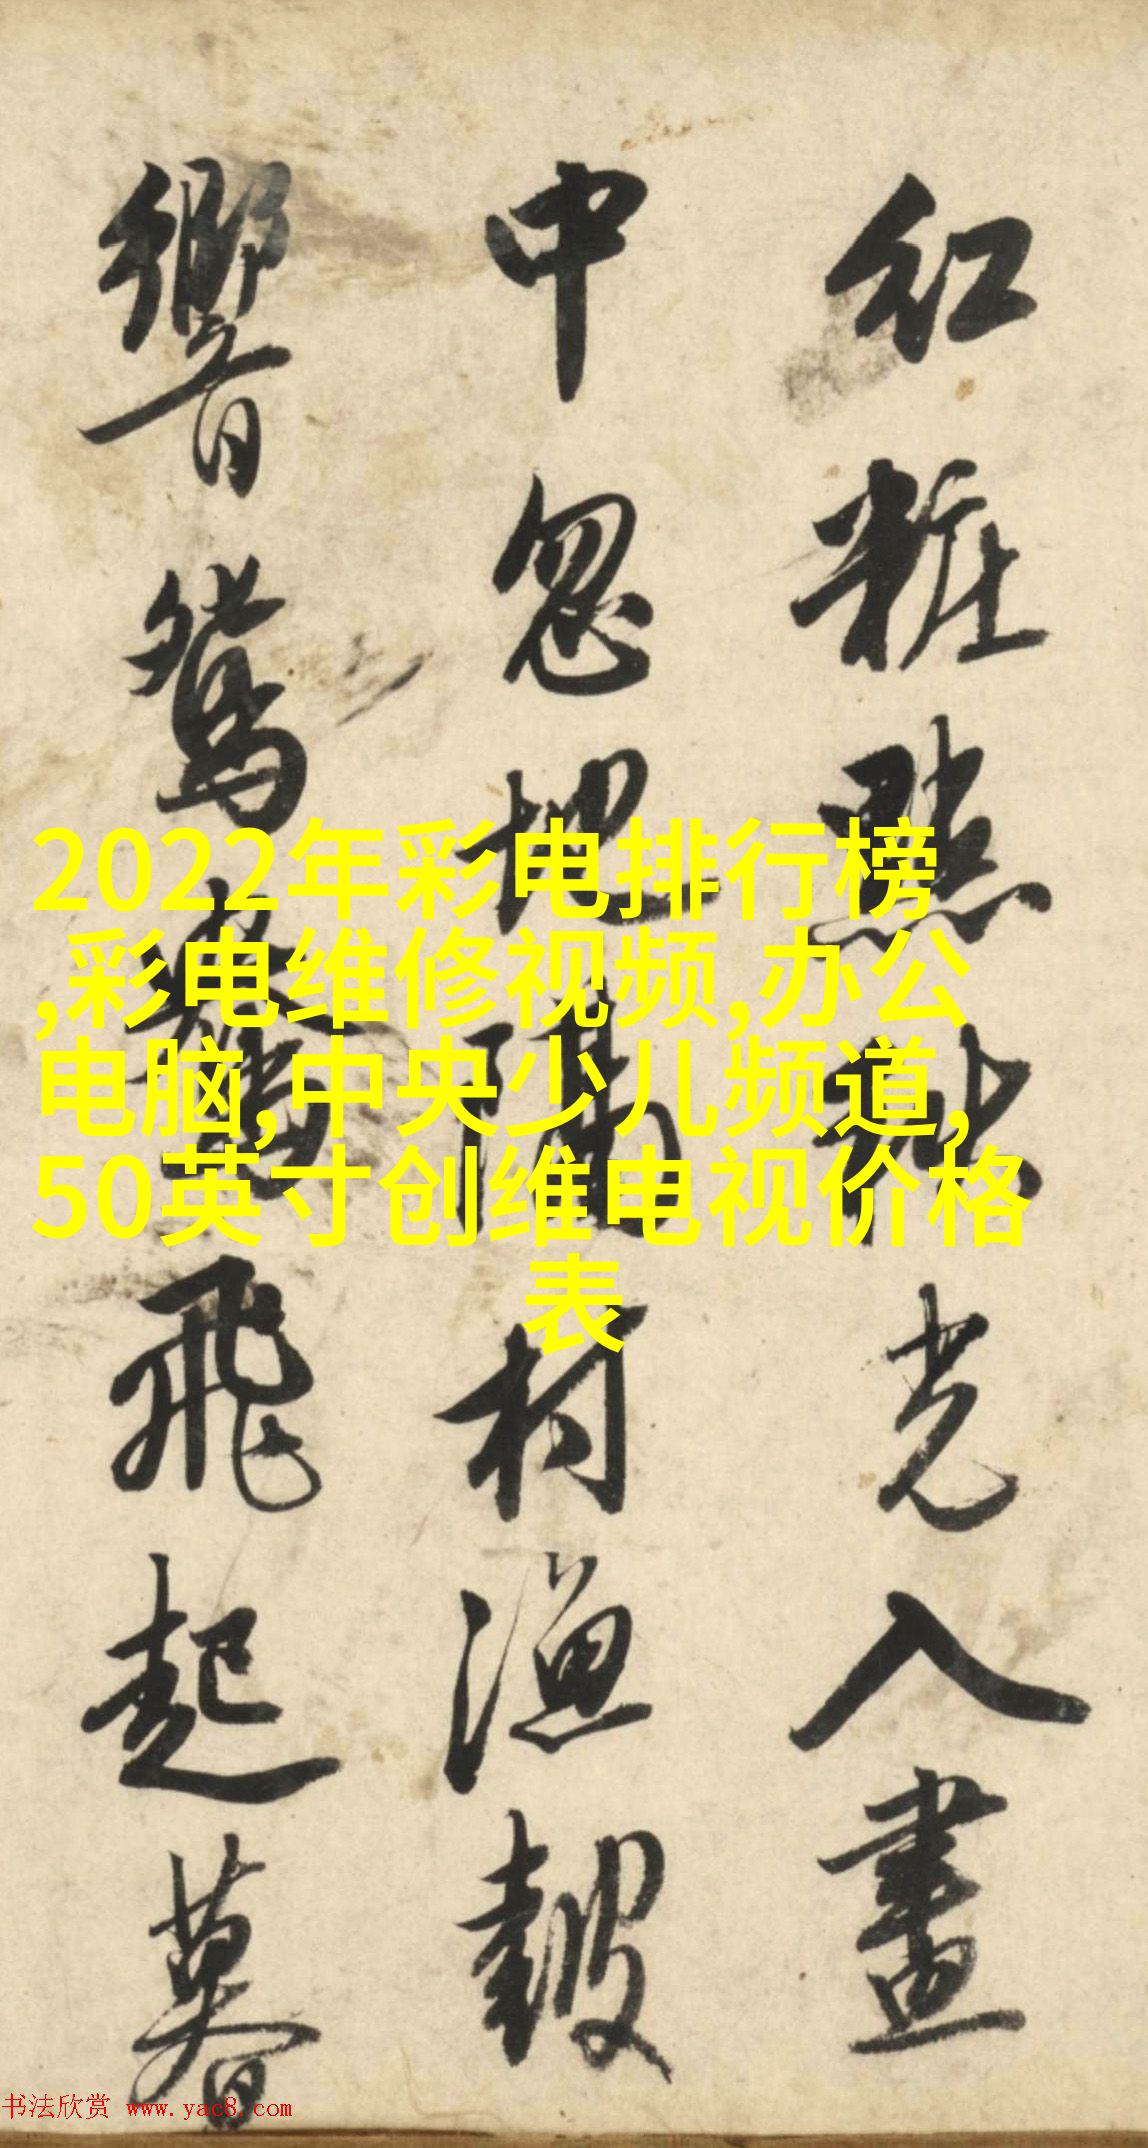 红粧點秋光入畫
中忽地隔村漁鼓
響鴛鴦飛起暮
2022年彩电排行榜
,彩电维修视频,办公
电脑,中央少儿频道,
50英寸创维电视价格
表
书法欣赏 www.yac8.com